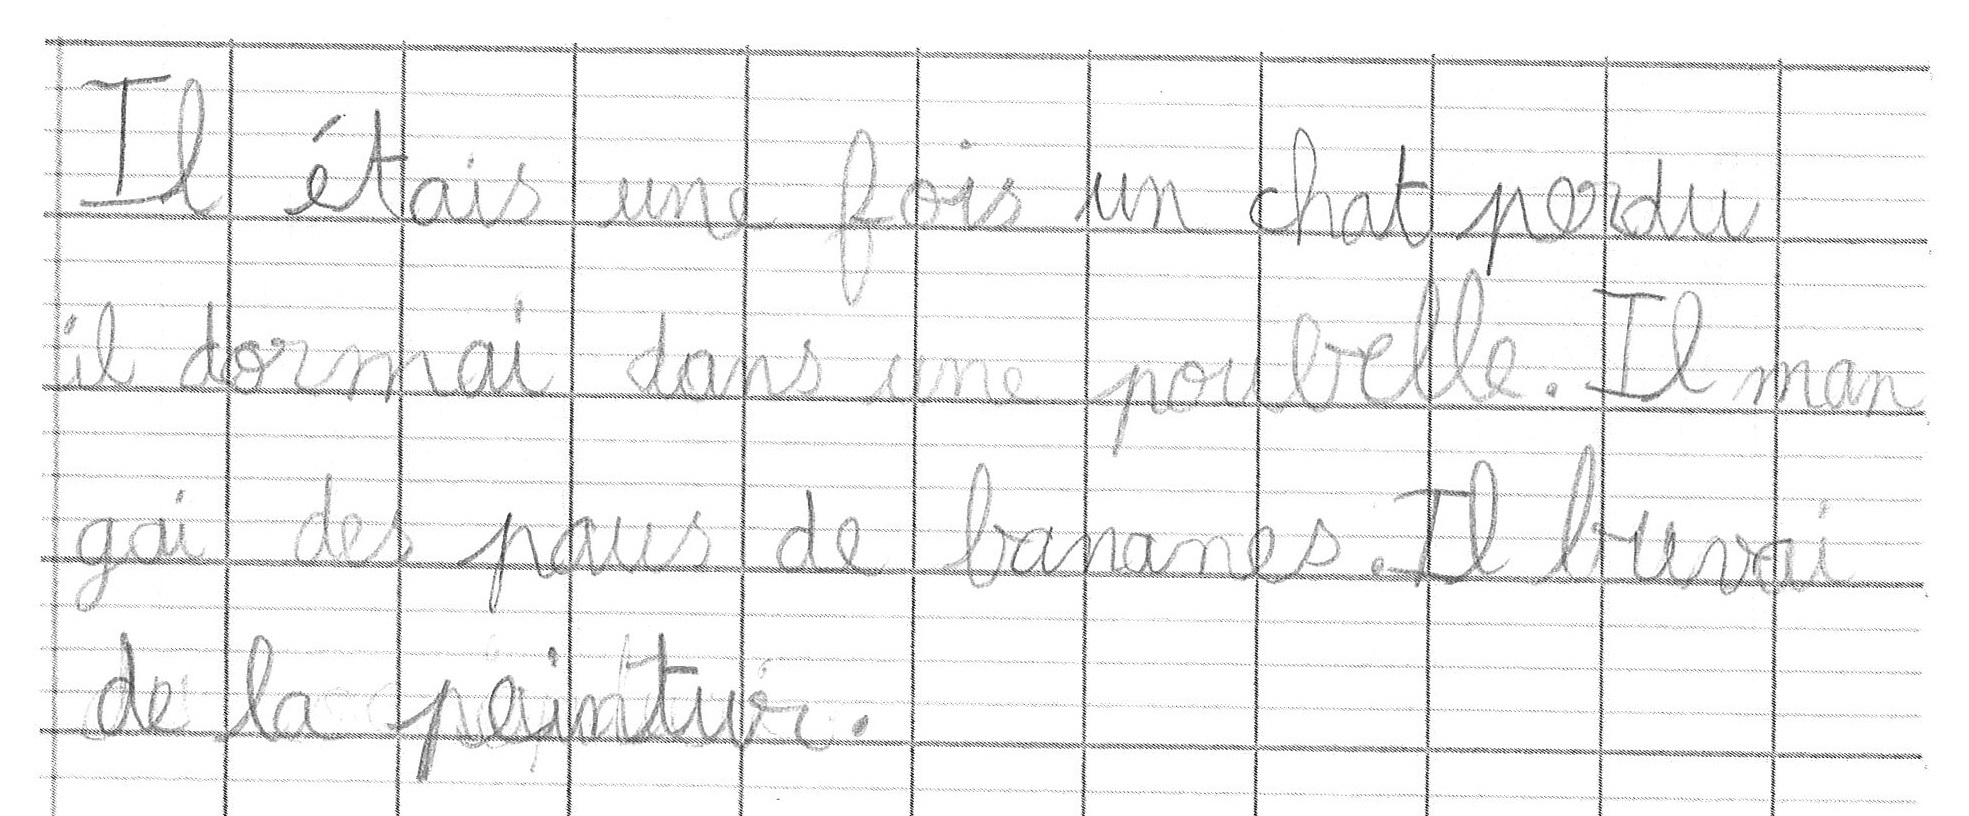 Il étais une fois un chat perdu
il dormai dans une poubelle. Il man
gai des paus de bananes. Il buvai
de la peintur.